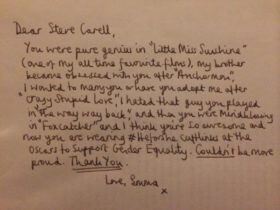 Dear Steve Carell,
You were pure genius in "Little Miss Sunshine"
(one of my all time favourite films), my brother
became obsessed with you after "Anchorman",
I wanted to marry you or have you adopt me after
"Crazy Stupid Love", I hated that guy you played
in "the way way back", and then you were Mindblowing
in "Foxcatcher" and I think you're so awesome and
now you are wearing #heforshe cufflinks at the
Oscars to support Gender Equality. Couldn't be more
proud. Thank You.
Love, Emma
x